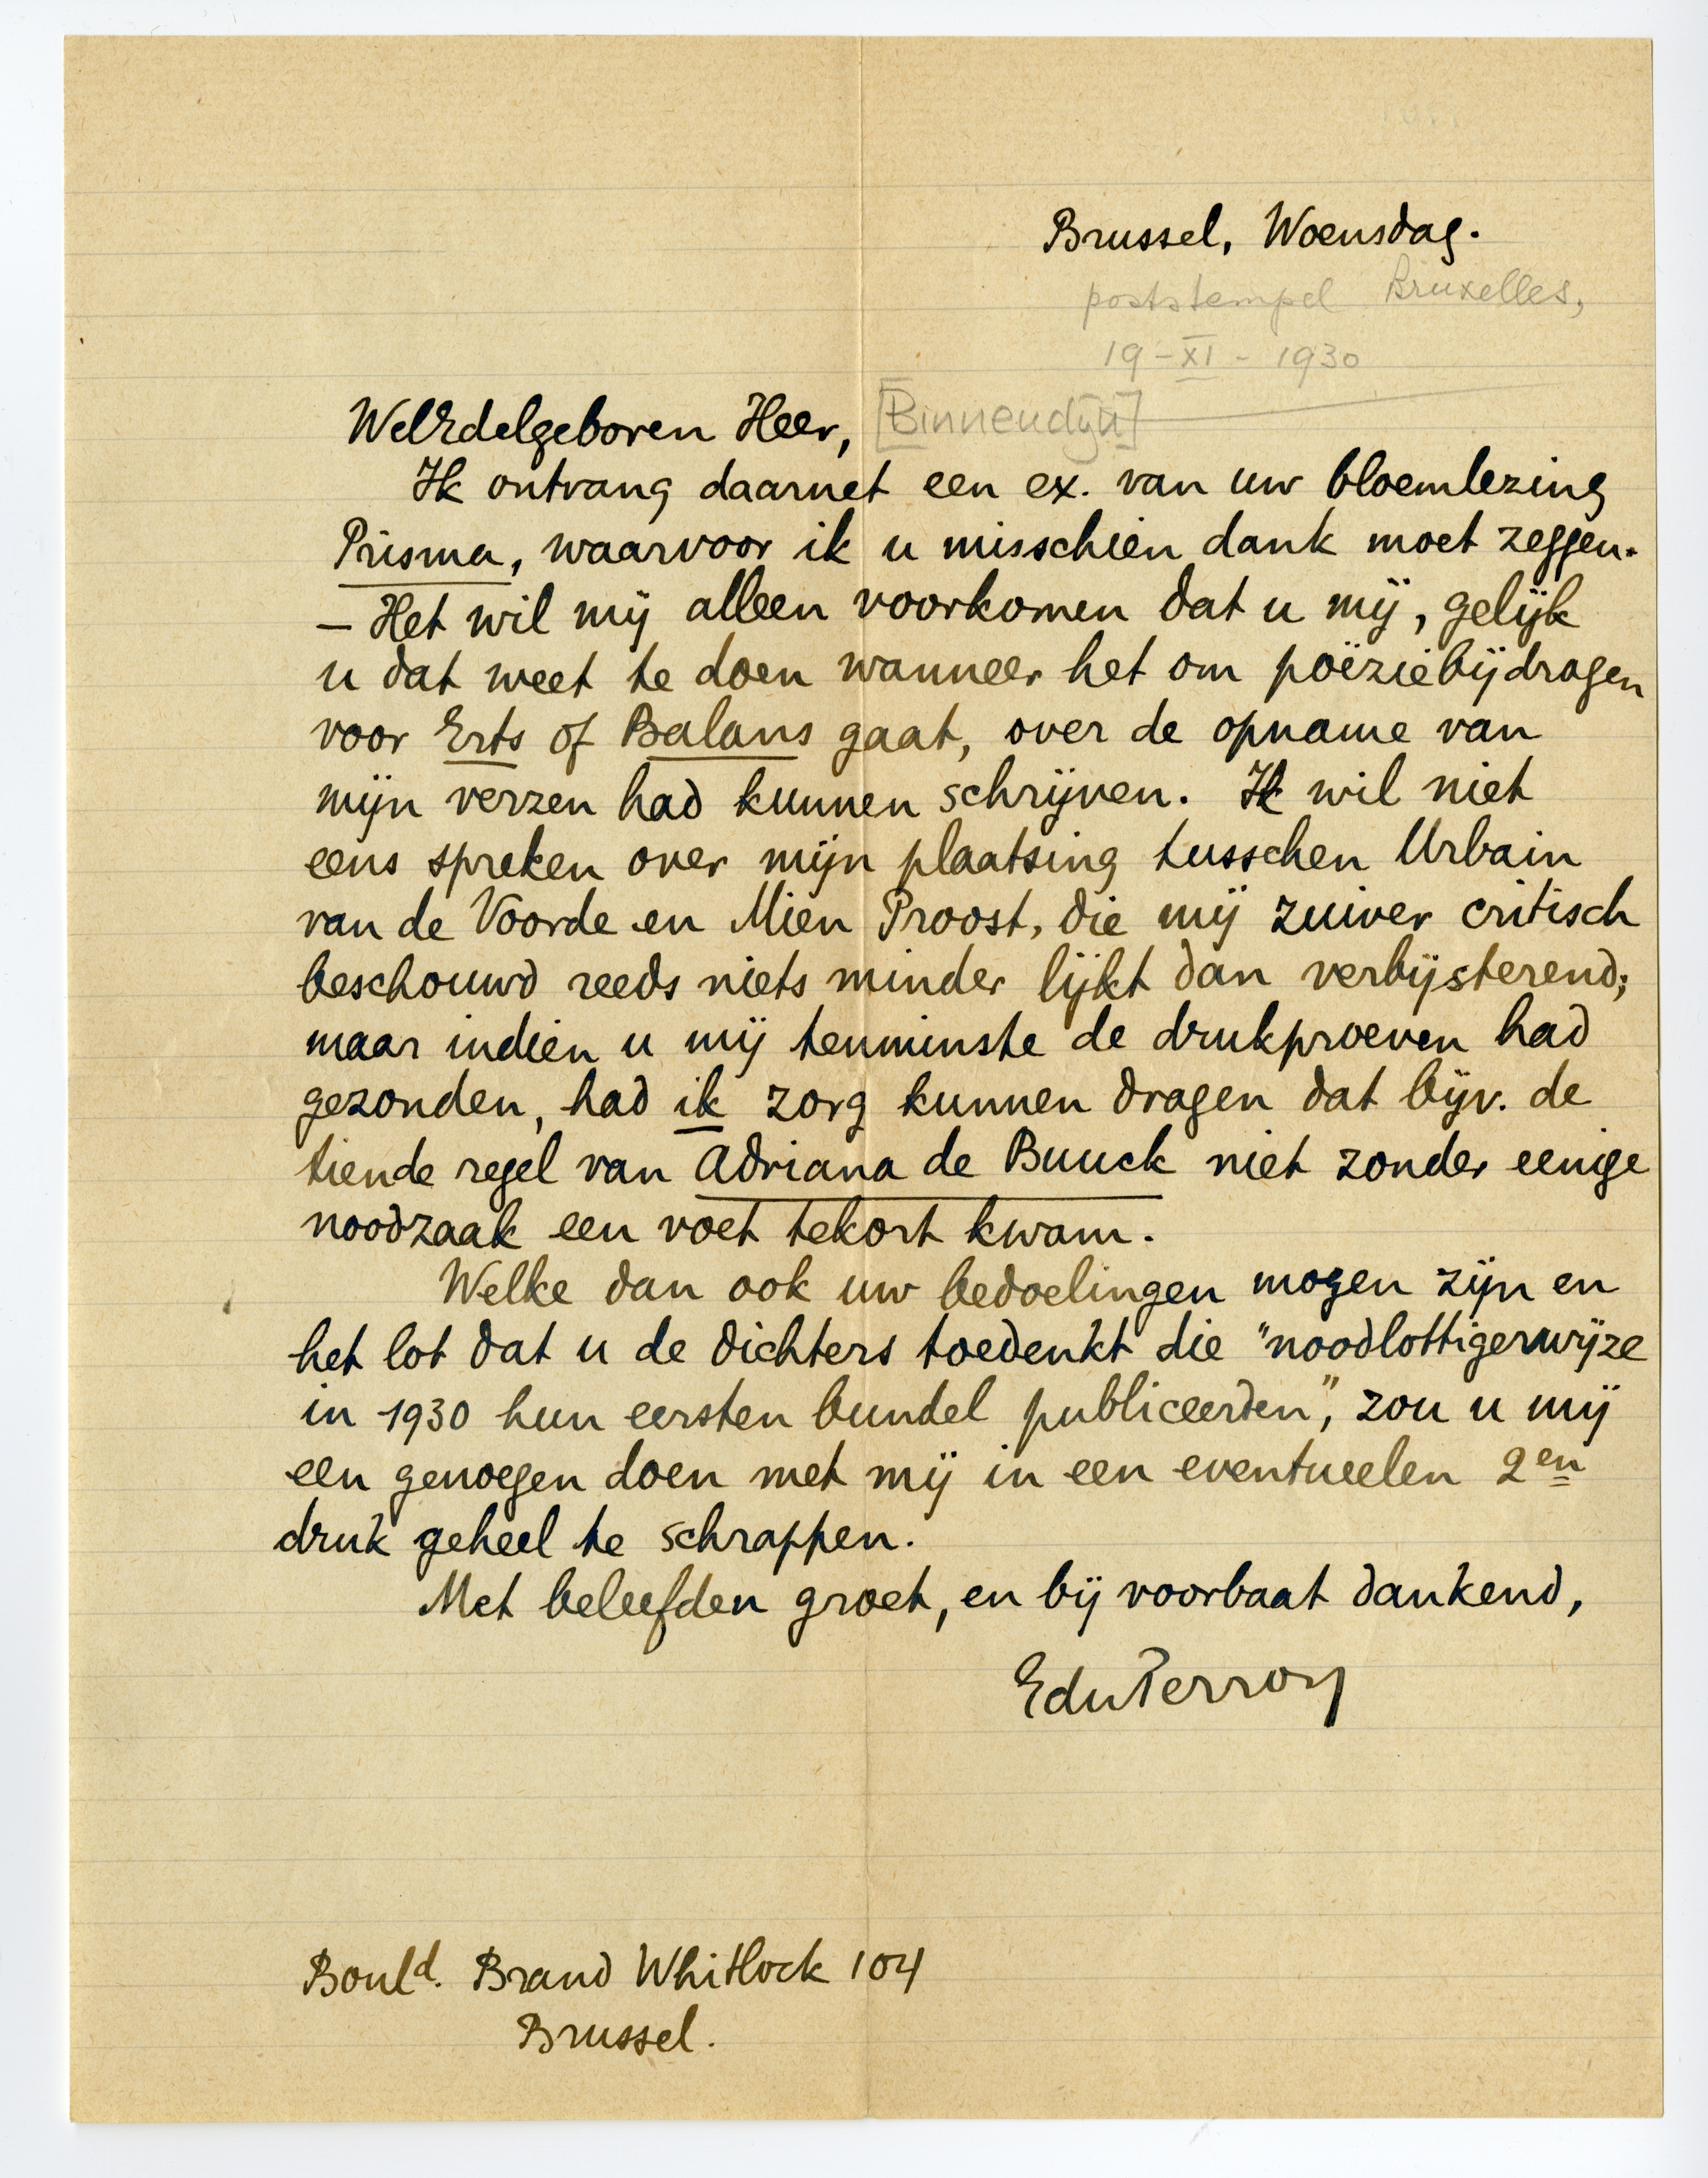 Brussel, Woensdag.
poststempel Bruxelles,
19-XI-1930
WelEdelgeboren Heer, [Binnendijk]
Ik ontvang daarnet een ex. van uw bloemlezing
Prisma, waarvoor ik u misschien dank moet zeggen.
— Het wil mij alleen voorkomen dat u mij, gelijk
u dat weet te doen wanneer het om poëziebijdragen
voor Erts of Balans gaat, over de opname van
mijn verzen had kunnen schrijven. Ik wil niet
eens spreken over mijn plaatsing tusschen Urbain
van de Voorde en Mien Proost, die mij zuiver critisch
beschouwd reeds niets minder lijkt dan verbijsterend;
maar indien u mij tenminste de drukproeven had
gezonden, had ik zorg kunnen dragen dat bijv. de
tiende regel van Adriana de Buuck niet zonder eenige
noodzaak een voet tekort kwam.
Welke dan ook uw bedoelingen mogen zijn en
het lot dat u de dichters toedenkt die "noodlottigerwijze
in 1930 hun eersten bundel publiceerden", zou u mij
een genoegen doen met mij in een eventueelen 2en
druk geheel te schrappen.
Met beleefden groet, en bij voorbaat dankend,
EduPerron
Bould. Brand Whitlock 104
Brussel.